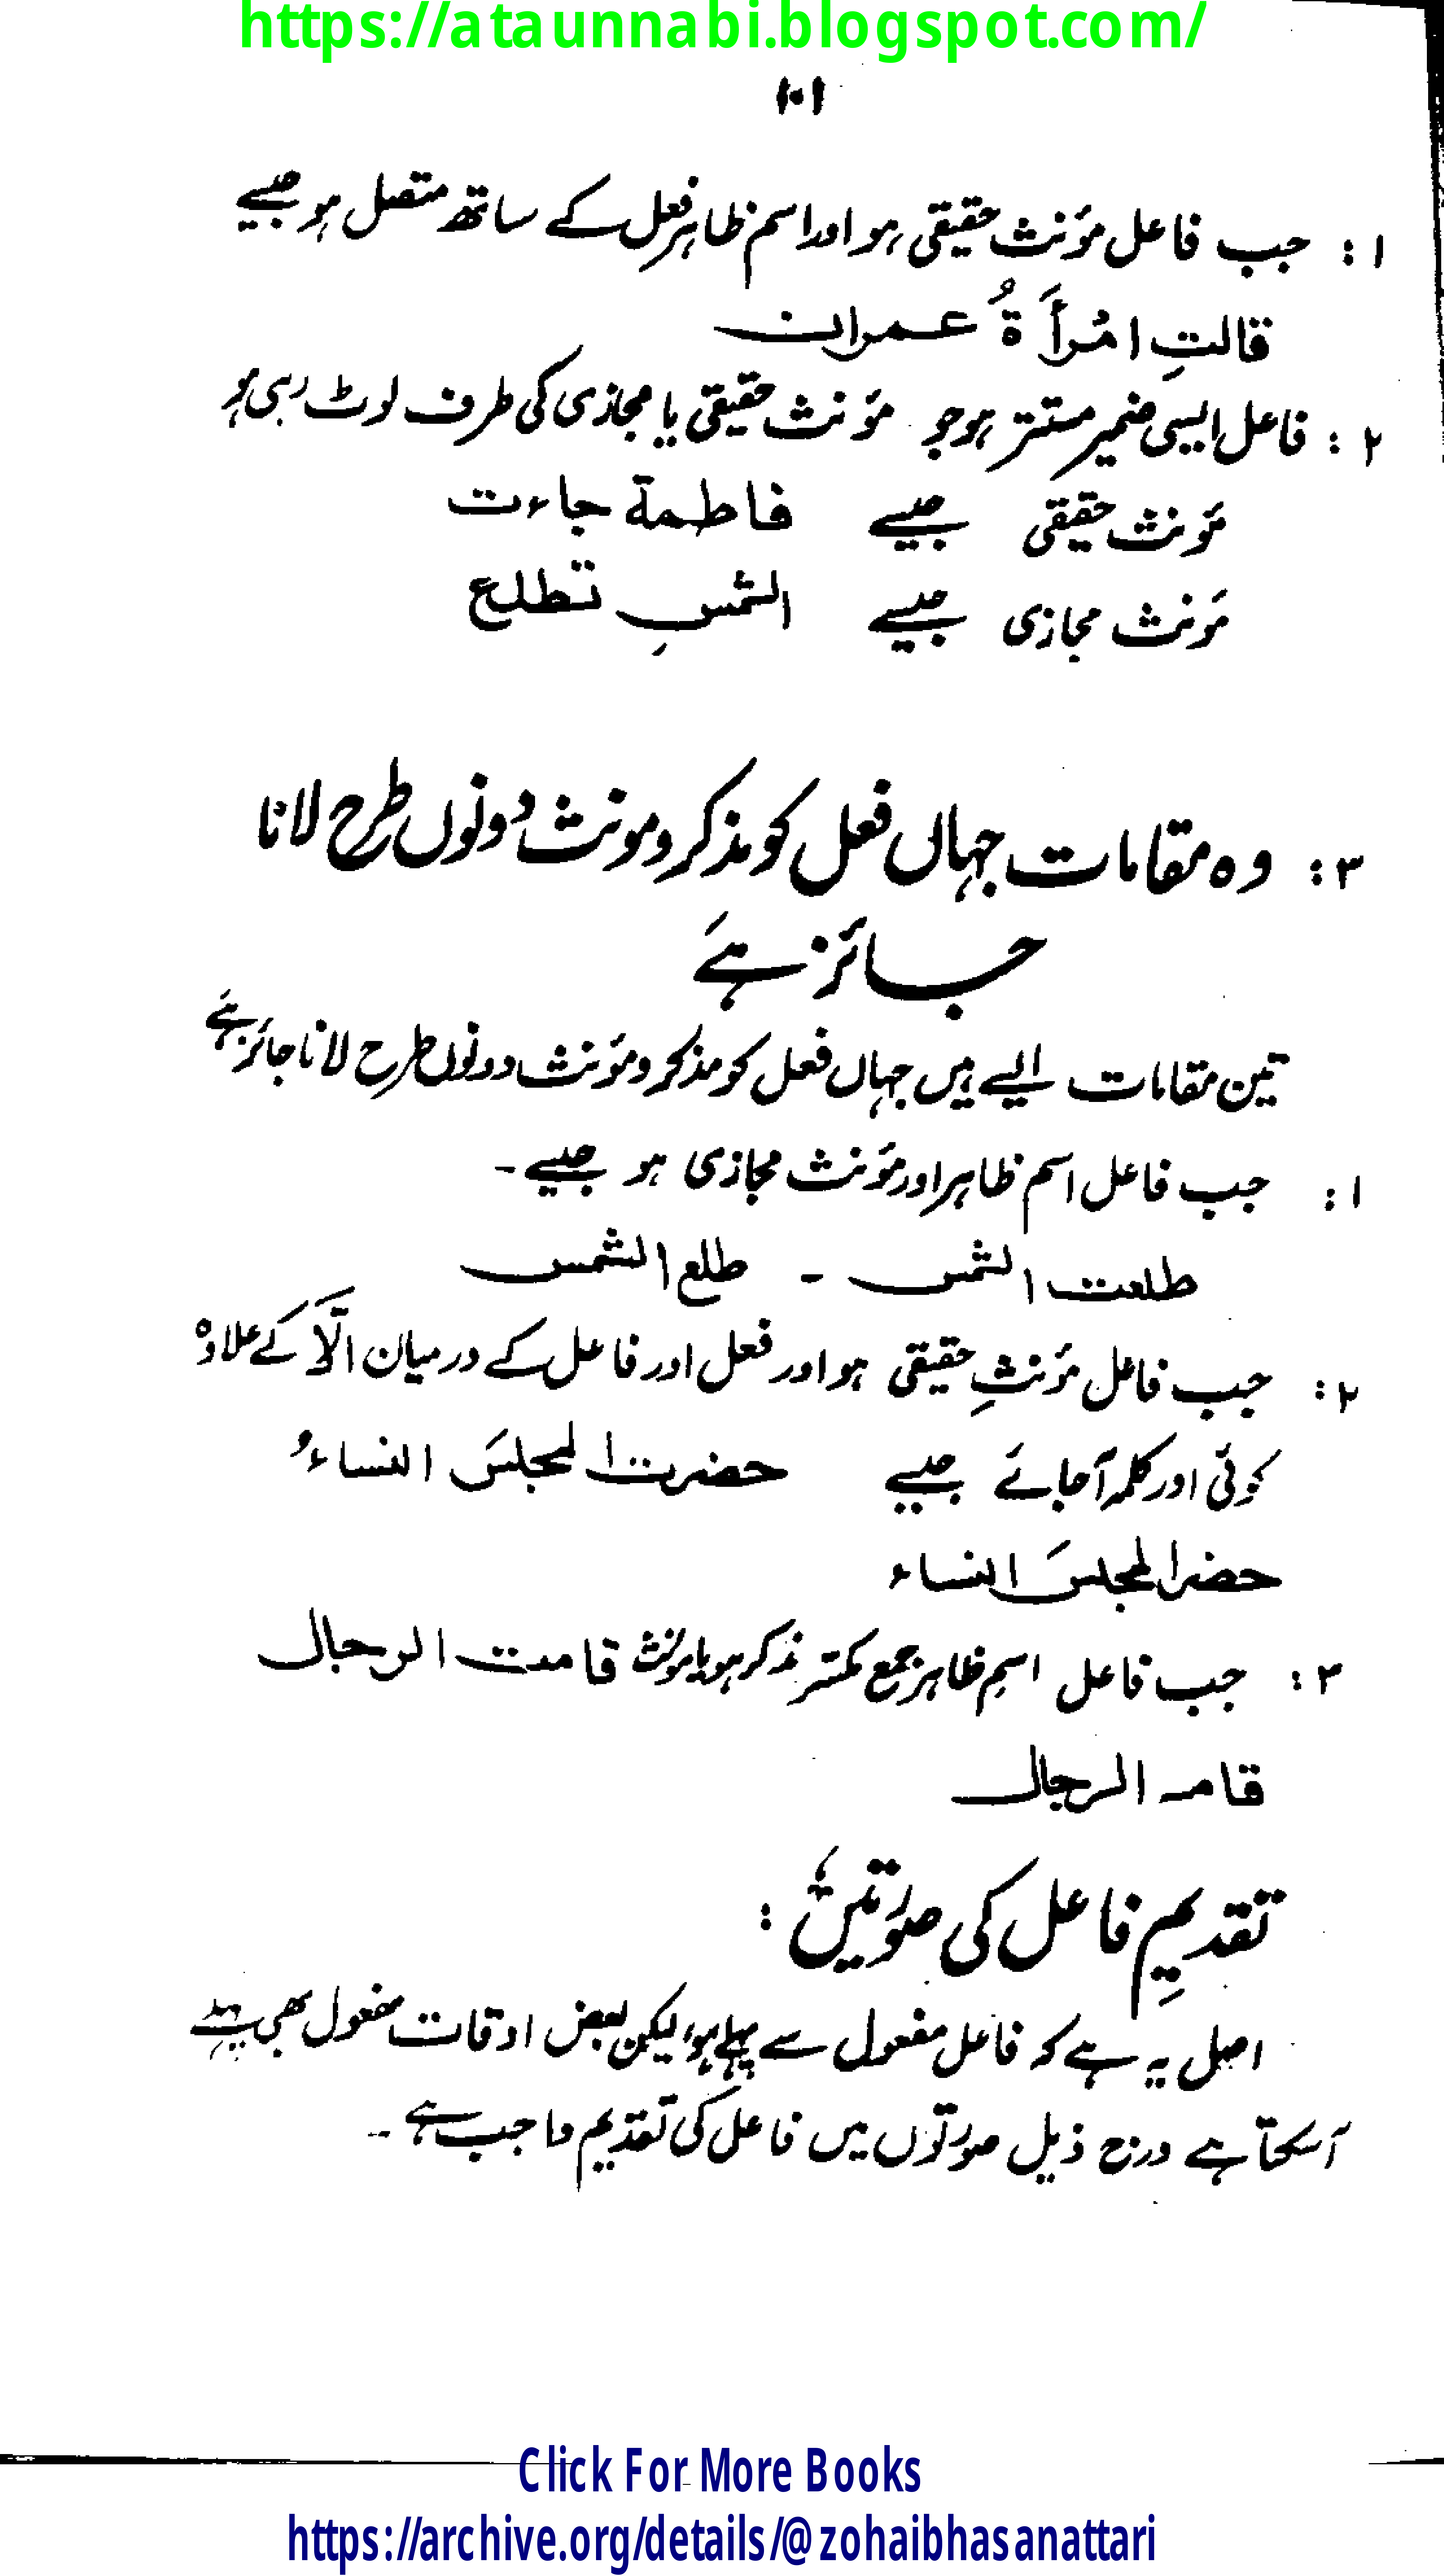 https://ataunnabi.blogspot.com/
۱۰۱
۱ : جب فاعل مؤنث حقیقی ہو اور اسم ظاہر فعل کے ساتھ متصل ہو جیسے
قالتِ امْرأَةُ عمران
۲ : فاعل ایسی ضمیر مستتر ہو جو مؤنث حقیقی یا مجازی کی طرف لوٹ رہی ہو
مؤنث حقیقی جیسے فاطمة جاءت
مؤنث مجازی جیسے الشمسِ تطلع
۳ : وہ مقامات جہاں فعل کو مذکر و مونث دونوں طرح لانا
جائز ہے
تین مقامات ایسے ہیں جہاں فعل کو مذکر و مؤنث دونوں طرح لانا جائز ہے
۱ : جب فاعل اسم ظاہر اور مؤنث مجازی ہو جیسے ۔
طلعت الشمس ۔ طلع الشمس
۲ : جب فاعل مؤنثِ حقیقی ہو اور فعل اور فاعل کے درمیان الّا کے علاوہ
کوئی اور کلمہ آجائے جیسے حضرت المجلسَ النساءُ
حضر المجلسَ النساء
۳ : جب فاعل اسمِ ظاہر جمع مکسر مذکر ہو یا مونث قامت الرجال
قام الرجال
تقدیمِ فاعل کی صورتیں :
اصل یہ ہے کہ فاعل مفعول سے پہلے ہو، لیکن بعض اوقات مفعول بھی پہلے
آسکتا ہے درج ذیل صورتوں میں فاعل کی تقدیم واجب ہے ۔
Click For More Books
https://archive.org/details/@zohaibhasanattari